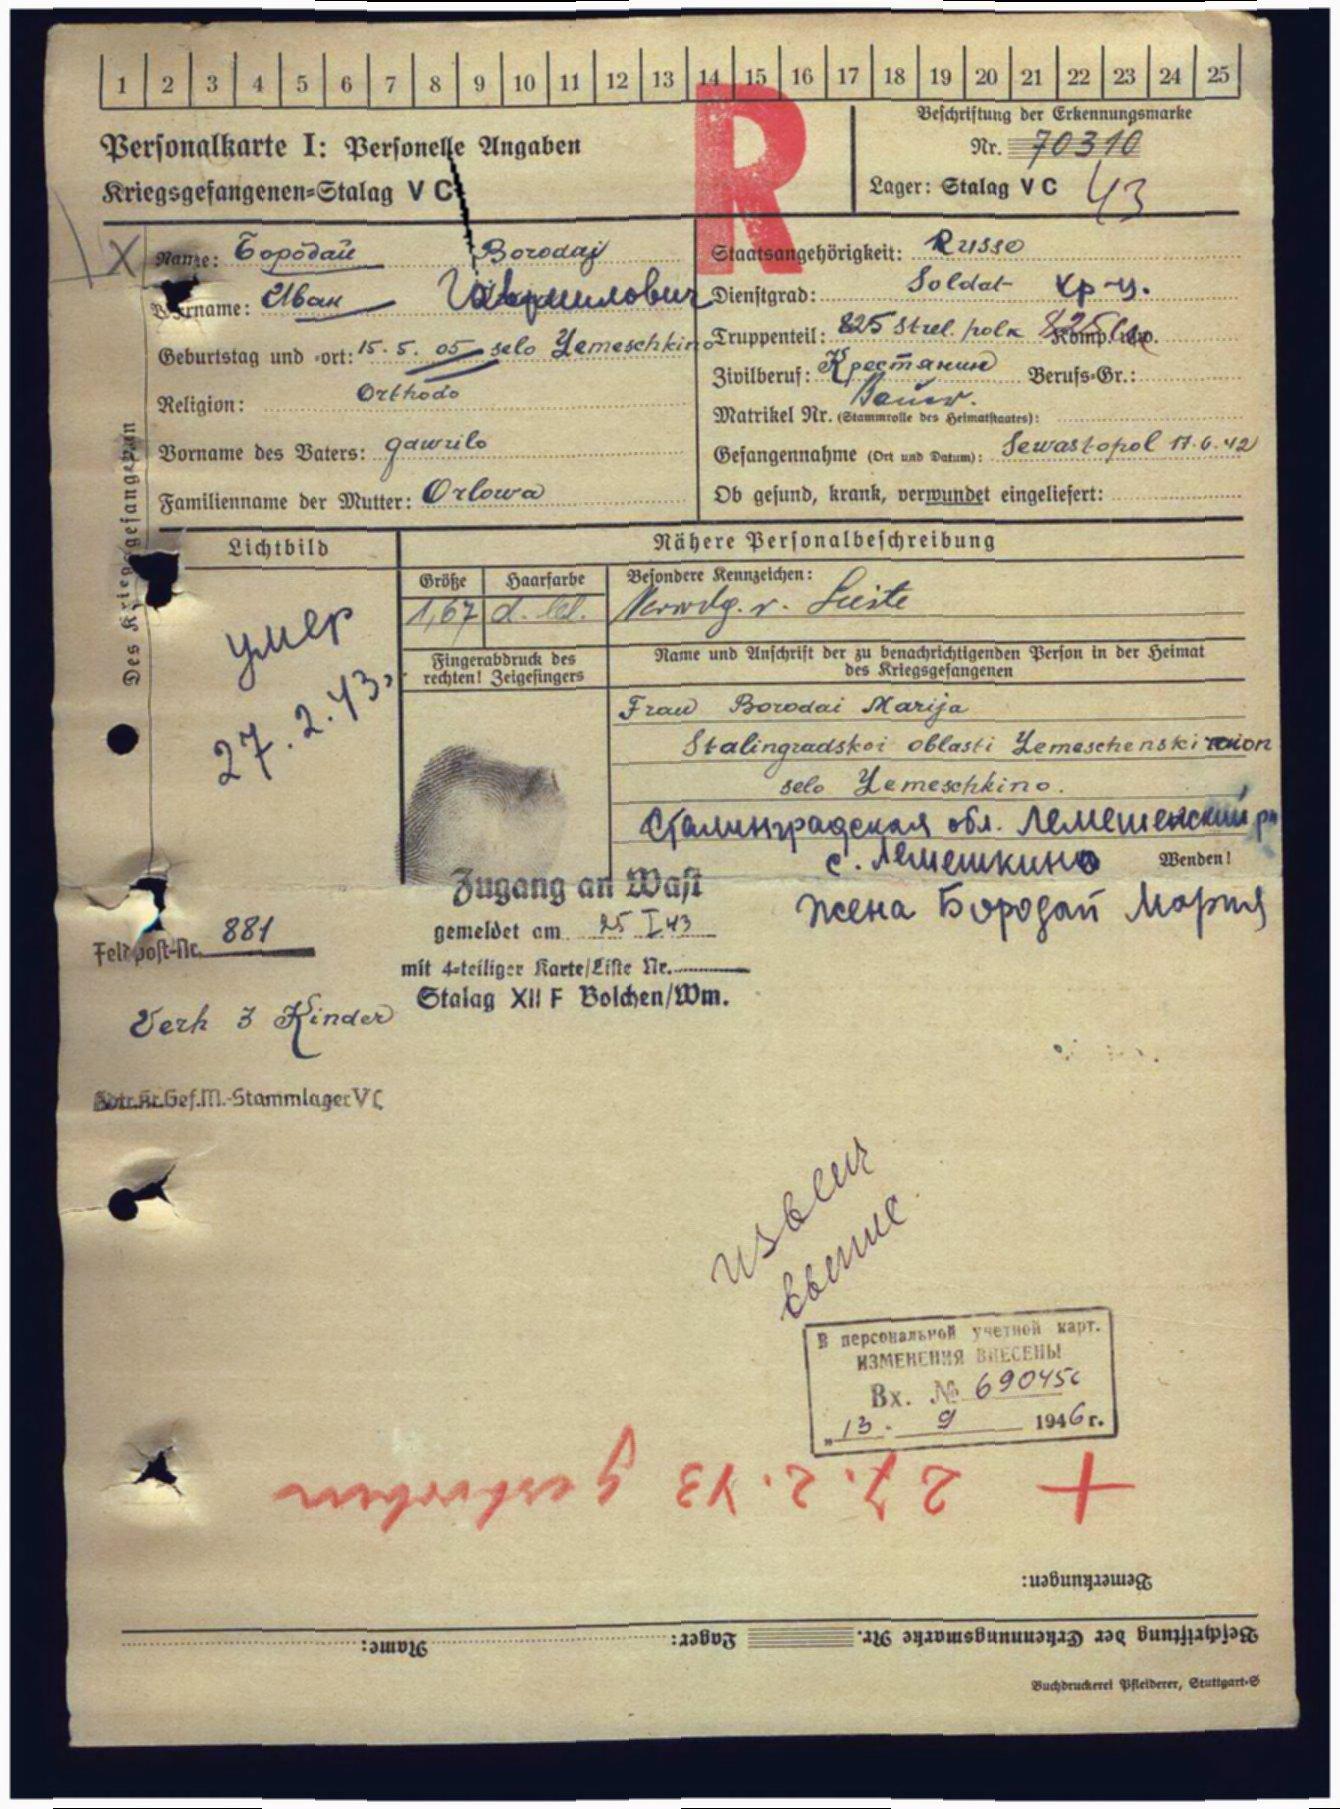 1 2 3 4 5 6 7 8 9 10 11 12 13 14 15 16 17 18 19 20 21 22 23 24 25
R
Personalkarte I: Personelle Angaben
Kriegsgefangenen-Stalag V C
Beschriftung der Erkennungsmarke
Nr. 70310
Lager: Stalag V C 43
X
Name: Бородай Borodaj
Vorname: Иван Гаврилович
Geburtstag und -ort: 15. 5. 05 selo Lemeschkino
Religion: Orthodo
Vorname des Vaters: Gawrilo
Familienname der Mutter: Orlowa
Staatsangehörigkeit: Russe
Dienstgrad: Soldat кр-ц.
Truppenteil: 825 Strel. polk 825 Komp. usw.
Zivilberuf: Крестянин Berufs-Gr.:
Bauer.
Matrikel Nr. (Stammrolle des Heimatstaates):
Gefangennahme (Ort und Datum): Sewastopol 17.6.42
Ob gesund, krank, verwundet eingeliefert:
Des Kriegsgefangenen
Lichtbild
умер
27.2.43
Nähere Personalbeschreibung
Größe Haarfarbe Besondere Kennzeichen:
1,67 d. bl. Verwdg. r. Leiste
Fingerabdruck des
rechten! Zeigefingers
Name und Anschrift der zu benachrichtigenden Person in der Heimat
des Kriegsgefangenen
Frau Borodai Marija
Stalingradskoi oblasti Lemeschenski raion
selo Lemeschkino.
Сталинградская обл. Лемешенский рн
с. Лемешкино
Wenden!
жена Бородай Мария
Zugang an Wast
gemeldet am 25 I 43
mit 4-teiliger Karte/Liste Nr.
Stalag XII F Bolchen/Wm.
Feldpost-Nr. 881
Verh 3 Kinder
Kdtr.Kr.Gef.M.-Stammlager V C
извещ
В персональной учетной карт.
ИЗМЕНЕНИЯ ВНЕСЕНЫ
Вх. № 69045с
„13. 9 1946 г.
+ 27. 2. 43 gestorben
Bemerkungen:
Beschriftung der Erkennungsmarke Nr. Lager: Name:
Buchdruckerei Pfleiderer, Stuttgart-S